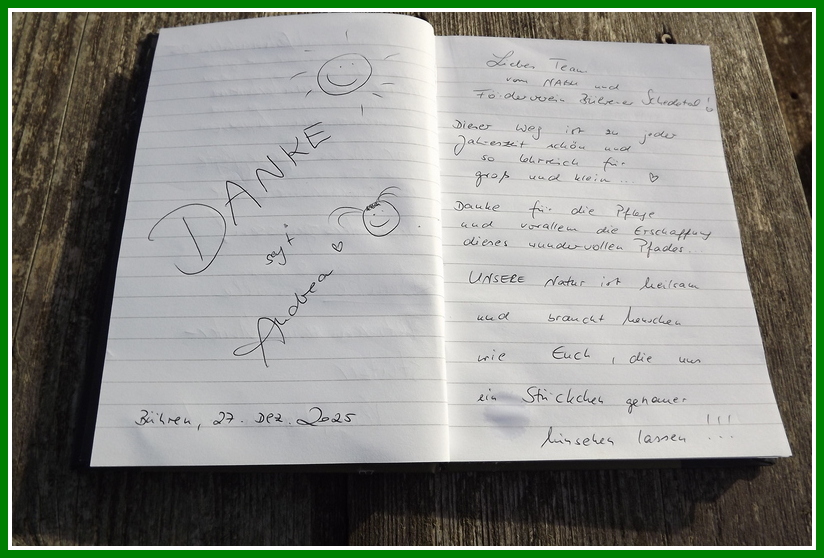 DANKE
sagt
Andrea ♡
Bühren, 27. Dez. 2025
Liebes Team
vom NABU und
Förderverein Bührener Schedetal!
Dieser Weg ist zu jeder
Jahreszeit schön und
so lehrreich für
groß und klein... ♡
Danke für die Pflege
und vorallem die Erschaffung
dieses wundervollen Pfades.
UNSERE Natur ist heilsam
und braucht Menschen
wie Euch, die uns
ein Stückchen genauer
hinsehen lassen !!!